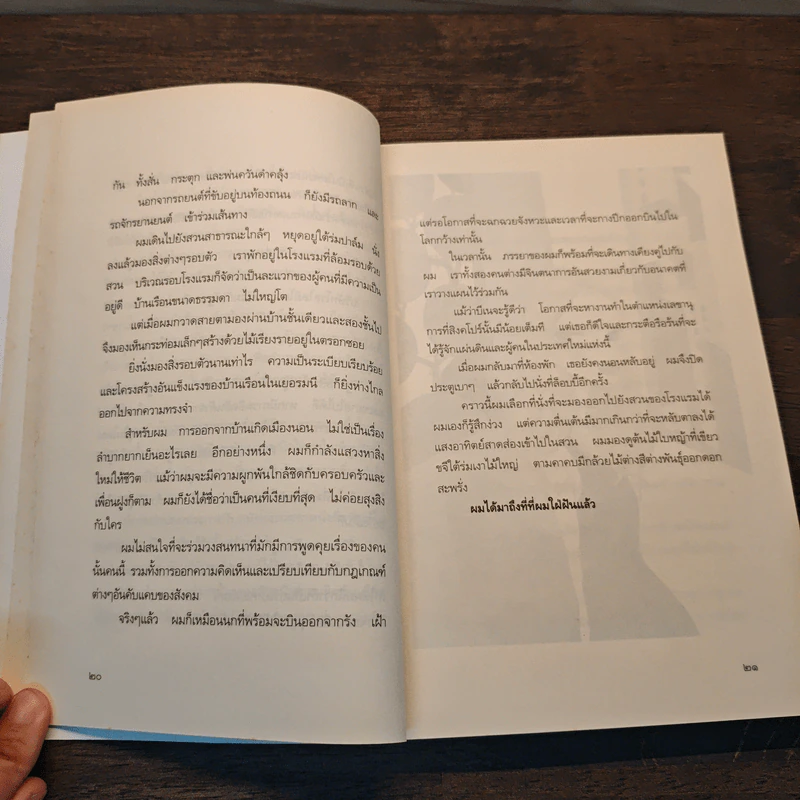 กัน ทั้งสั่น กระตุก และพ่นควันดำคลุ้ง
นอกจากรถยนต์ที่ขับอยู่บนท้องถนน ก็ยังมีรถลาก และ
รถจักรยานยนต์ เข้าร่วมเส้นทาง
ผมเดินไปยังสวนสาธารณะใกล้ๆ หยุดอยู่ใต้ร่มปาล์ม นั่ง
ลงแล้วมองสิ่งต่างๆรอบตัว เราพักอยู่ในโรงแรมที่ล้อมรอบด้วย
สวน บริเวณรอบโรงแรมก็จัดว่าเป็นละแวกของผู้คนที่มีความเป็น
อยู่ดี บ้านเรือนขนาดธรรมดา ไม่ใหญ่โต
แต่เมื่อผมกวาดสายตามองผ่านบ้านชั้นเดียวและสองชั้นไป
จึงมองเห็นกระท่อมเล็กๆสร้างด้วยไม้เรียงรายอยู่ในตรอกซอย
ยิ่งนั่งมองสิ่งรอบตัวนานเท่าไร ความเป็นระเบียบเรียบร้อย
และโครงสร้างอันแข็งแรงของบ้านเรือนในเยอรมนี ก็ยิ่งห่างไกล
ออกไปจากความทรงจำ
สำหรับผม การออกจากบ้านเกิดเมืองนอน ไม่ใช่เป็นเรื่อง
ลำบากยากเย็นอะไรเลย อีกอย่างหนึ่ง ผมก็กำลังแสวงหาสิ่ง
ใหม่ให้ชีวิต แม้ว่าผมจะมีความผูกพันใกล้ชิดกับครอบครัวและ
เพื่อนฝูงก็ตาม ผมก็ยังได้ชื่อว่าเป็นคนที่เงียบที่สุด ไม่ค่อยสุงสิง
กับใคร
ผมไม่สนใจที่จะร่วมวงสนทนาที่มักมีการพูดคุยเรื่องของคน
นั้นคนนี้ รวมทั้งการออกความคิดเห็นและเปรียบเทียบกับกฎเกณฑ์
ต่างๆอันคับแคบของสังคม
จริงๆแล้ว ผมก็เหมือนนกที่พร้อมจะบินออกจากรัง เฝ้า
๒๐
แต่รอโอกาสที่จะฉกฉวยจังหวะและเวลาที่จะกางปีกออกบินไปใน
โลกกว้างเท่านั้น
ในเวลานั้น ภรรยาของผมก็พร้อมที่จะเดินทางเคียงคู่ไปกับ
ผม เราทั้งสองคนต่างมีจินตนาการอันสวยงามเกี่ยวกับอนาคตที่
เราวางแผนไว้ร่วมกัน
แม้ว่าบีเนจะรู้ดีว่า โอกาสที่จะหางานทำในตำแหน่งเลขานุ
การที่สิงคโปร์นั้นมีน้อยเต็มที แต่เธอก็ดีใจและกระตือรือร้นที่จะ
ได้รู้จักแผ่นดินและผู้คนในประเทศใหม่แห่งนี้
เมื่อผมกลับมาที่ห้องพัก เธอยังคงนอนหลับอยู่ ผมจึงปิด
ประตูเบาๆ แล้วกลับไปนั่งที่ล็อบบี้อีกครั้ง
คราวนี้ผมเลือกที่นั่งที่จะมองออกไปยังสวนของโรงแรมได้
ผมเองก็รู้สึกง่วง แต่ความตื่นเต้นมีมากเกินกว่าที่จะหลับตาลงได้
แสงอาทิตย์สาดส่องเข้าไปในสวน ผมมองดูต้นไม้ใบหญ้าที่เขียว
ขจีใต้ร่มเงาไม้ใหญ่ ตามคาคบมีกล้วยไม้ต่างสีต่างพันธุ์ออกดอก
สะพรั่ง
ผมได้มาถึงที่ที่ผมใฝ่ฝันแล้ว
๒๑